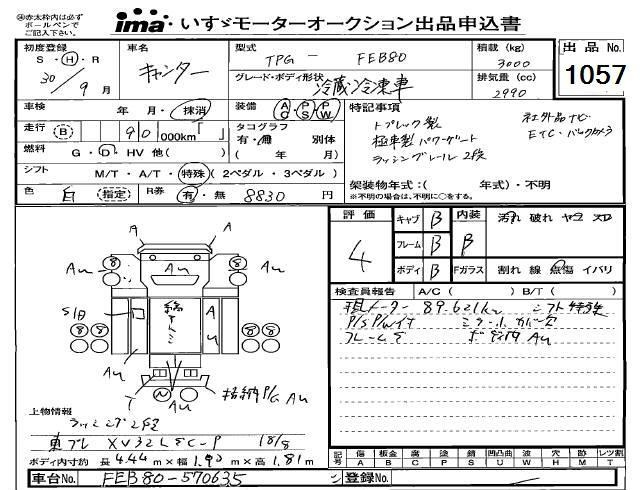 ④赤太枠内は必ず
ボールペンで
ご記入下さい。
ima いすゞモーターオークション出品申込書
初度登録 車名 型式 TPG - FEB80 積載 (kg) 3000 出品 No.
S・H・R 30/9月 キャンター グレード・ボディ形状 冷蔵冷凍車 排気量 (cc) 2990 1057
車検 年・月・抹消 装備 AC PS PW 特記事項
走行 (B) 90,000km「 」 タコグラフ 有・無 別体 トプレック製 社外品ナビ
燃料 G・D・HV 他( ) ( 年 / 月) 極東製パワーゲート ETC・バックカメラ
ラッシングレール2段
シフト M/T・A/T・特殊(2ペダル・3ペダル) 架装物年式:( 年式)・不明
色 白 (指定) R券 有・無 8830 円 ※不明の場合は、不明に○をする。
評価 4 キャブ B 内装 B 汚れ 破れ ヤコ スロ
フレーム B
ボディ B Fガラス 割れ 線 点傷 イバリ
検査員報告 A/C ( ) B/T ( )
現メーター 89.621km シフト特殊
P/S P/Wイナ ミラーカバー欠
フレームサ Au
A A
⑧ ⑧ Au Au ⑧ ⑧
S1日 Au A
⑧⑧ ⑧⑧
Au Au
T 格納P/G Au
上物情報
ラッシング2段
東プレ XV32LSC-P 18/8
ボディ内寸約 長 4.44m×幅 1.90m×高 1.81m
記号 傷A 板金B 腐C 塗P 錆S 凹凸曲U 波W 穴H 跡M レツ割T
車台No. FEB80-570635 登録No.